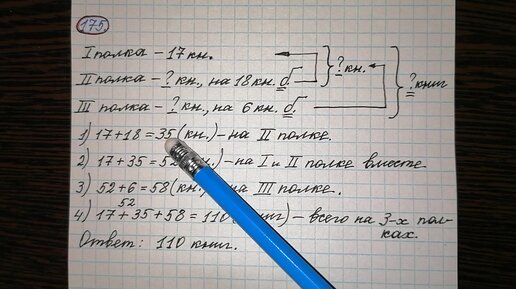 175.
I полка – 17 кн.
II полка – ? кн., на 18 кн. б } ? кн. } ? книг
III полка – ? кн., на 6 кн. б
1) 17 + 18 = 35 (кн.) – на II полке.
2) 17 + 35 = 52 н.) – на I и II полке вместе
3) 52 + 6 = 58 (кн.) на III полке.
52
4) 17 + 35 + 58 = 110 ниг) – всего на 3-х пол-
ках.
Ответ: 110 книг.